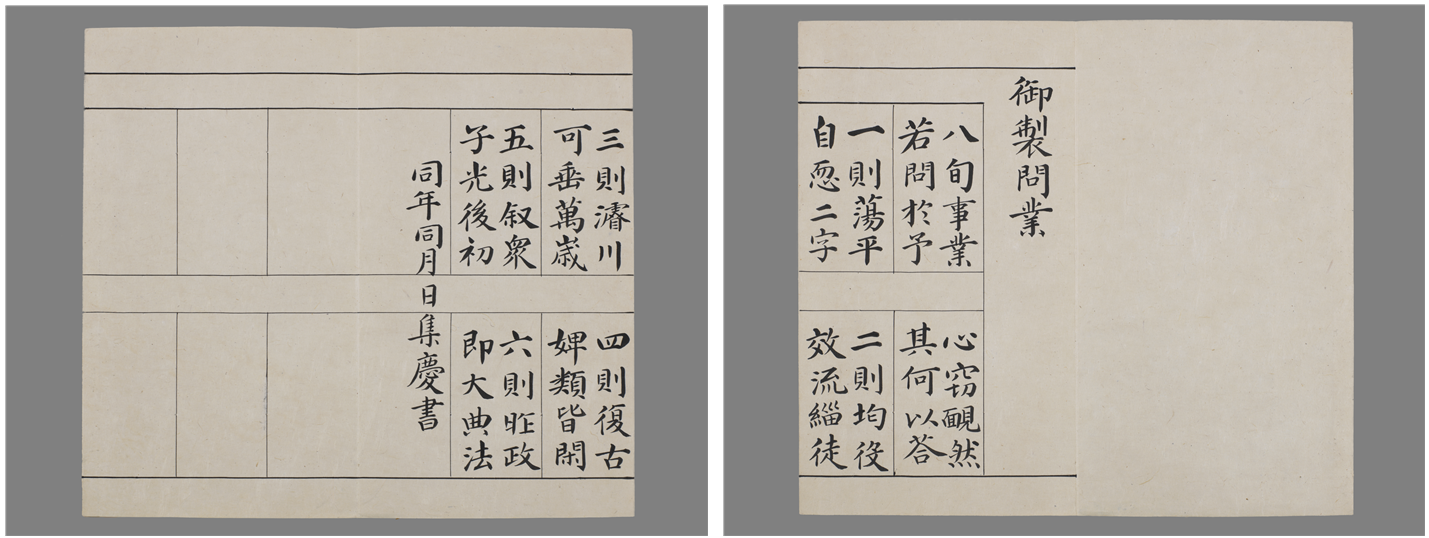 御製問業
八旬事業
若問於予
心窃靦然
其何以答
一則蕩平
自恧二字
二則均役
效流緇徒
三則濬川
可垂萬歲
四則復古
婢類皆閑
五則叙衆
子光後初
六則昨政
即大典法
同年同月日集慶書